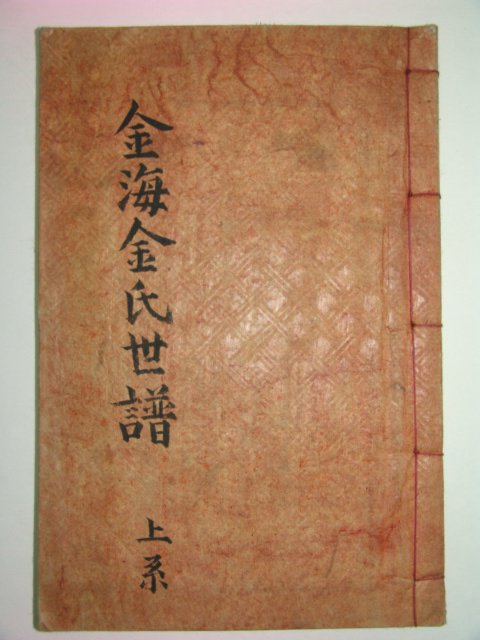 金海金氏世譜
上系